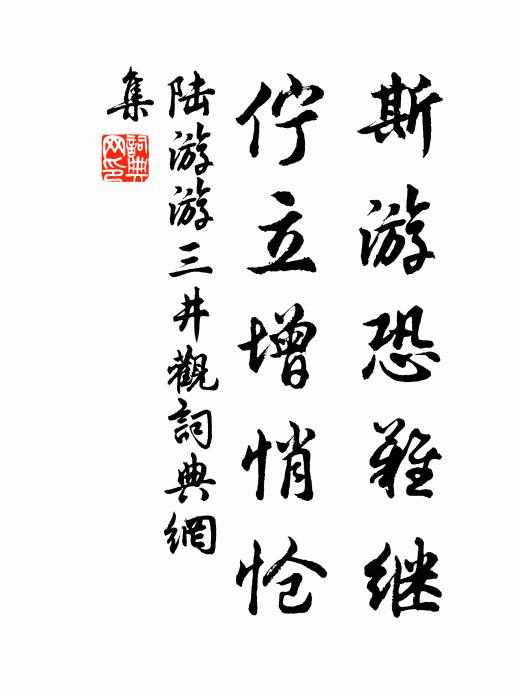 斯游恐难继
伫立增悄怆
陆游游三井觀詞典網
集
詞典網印